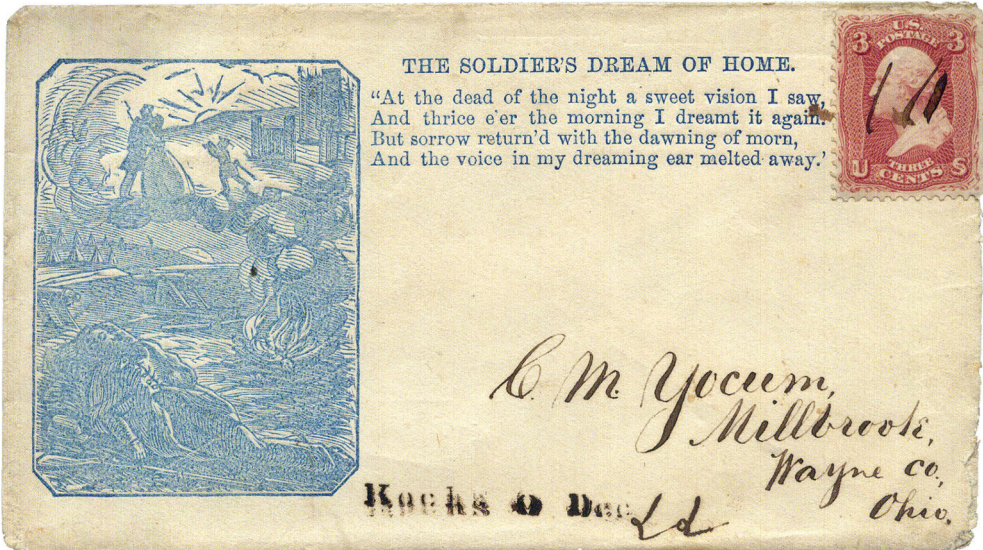 THE SOLDIER'S DREAM OF HOME.
"At the dead of the night a sweet vision I saw,
And thrice e'er the morning I dreamt it again.
But sorrow return'd with the dawning of morn,
And the voice in my dreaming ear melted away.'
U.S.
POSTAGE
3 3
THREE
CENTS
U S
C. M. Yocum,
Millbrook,
Wayne Co.,
Ohio.
O Dec